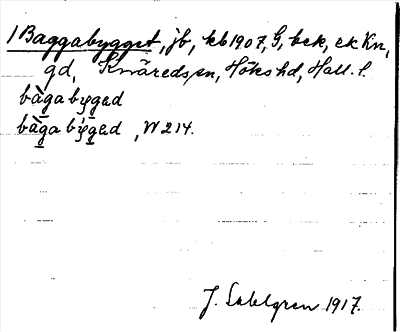 1 Baggabygget, jb, kb 1907, G, bek, ek Kn,
gd, Knäreds sn, Höks hd, Hall. l.
bàgabyged
bàgabyged, W 214.
J. Sahlgren 1917.